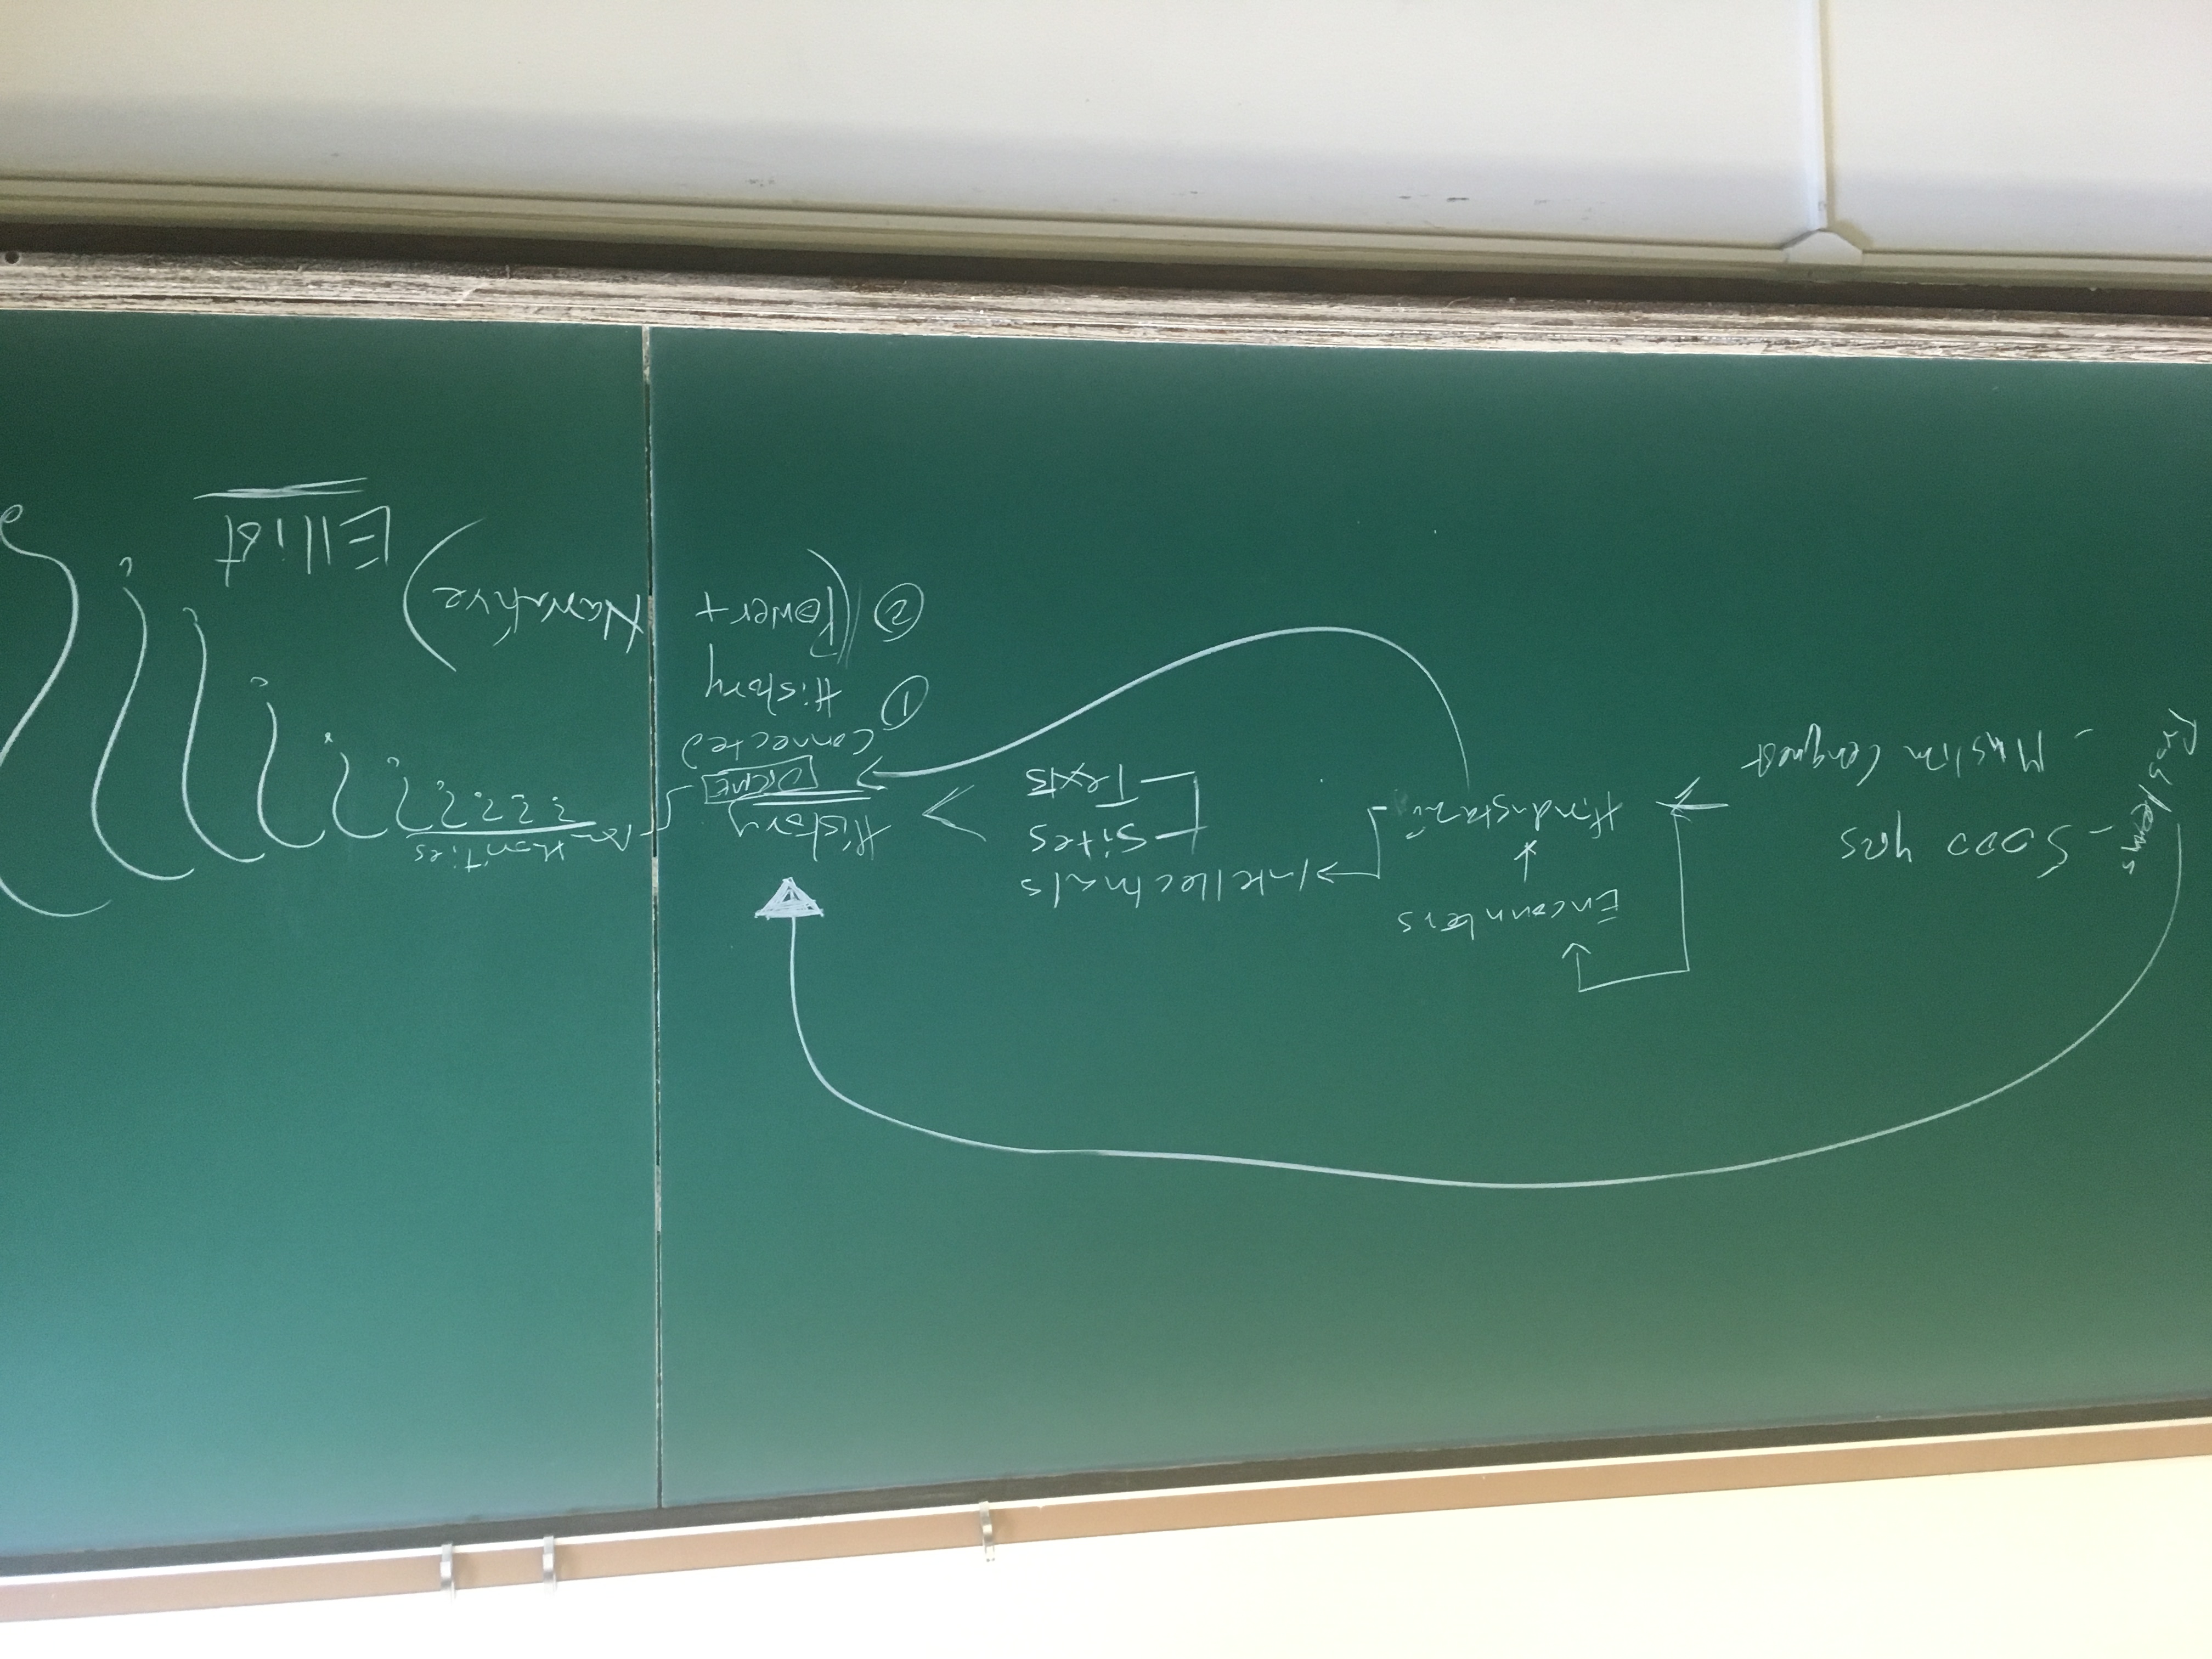 Problems
- 5000 yrs
- Muslim Conquest
Encounters
Hindustani
Intellectuals
Sites
Texts
>
History
ORME
Connected
① History
② (Power + Narrative)
Authorities
? ? ? ? ? ? ? ? ? ? ?
Elliot